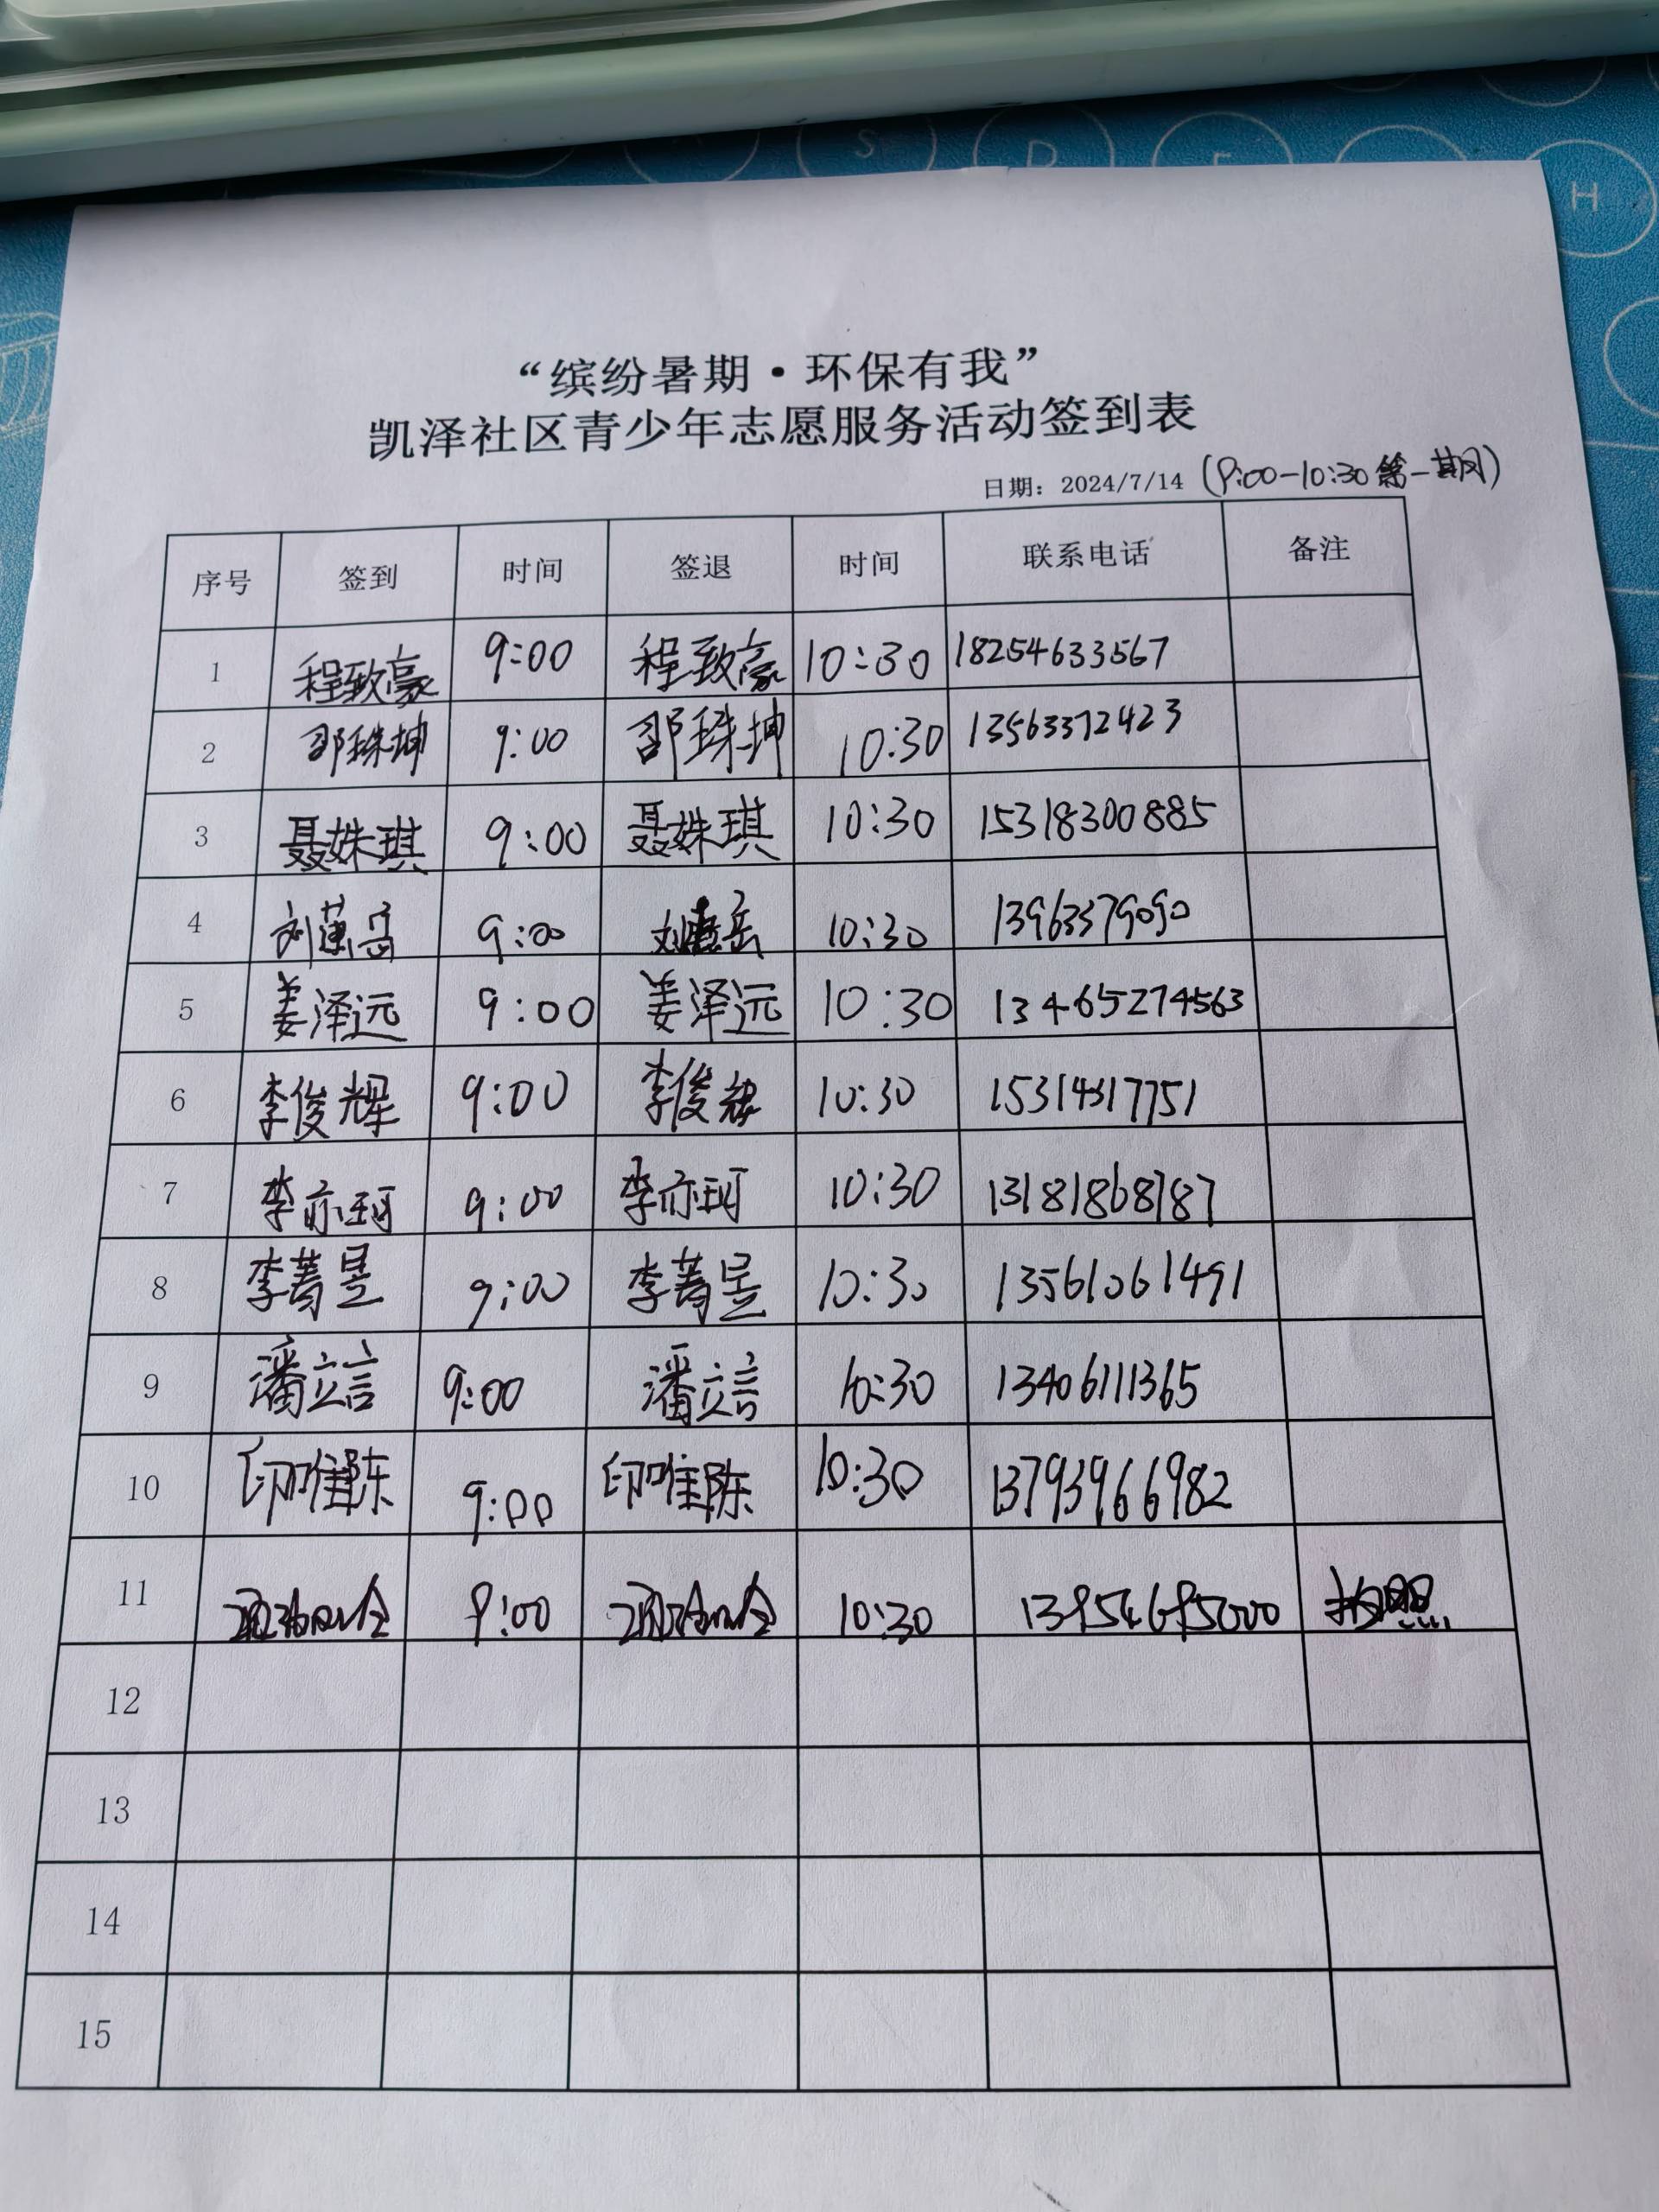 S D F H
“缤纷暑期·环保有我”
凯泽社区青少年志愿服务活动签到表
日期：2024/7/14 (9:00-10:30第一期)
序号 签到 时间 签退 时间 联系电话 备注
1 程致豪 9:00 程致豪 10:30 18254633567
2 邵珠坤 9:00 邵珠坤 10:30 13563372423
3 聂姝琪 9:00 聂姝琪 10:30 15318300885
4 刘 岳 9:00 刘 岳 10:30 13963379090
5 姜泽远 9:00 姜泽远 10:30 13465274563
6 李俊辉 9:00 李俊辉 10:30 15314317751
7 李亦珂 9:00 李亦珂 10:30 13181868787
8 李菁昱 9:00 李菁昱 10:30 13561061491
9 潘立言 9:00 潘立言 10:30 13406111365
10 印唯陈 9:00 印唯陈 10:30 13793966982
11 9:00 10:30 13954695000 拍照
12
13
14
15